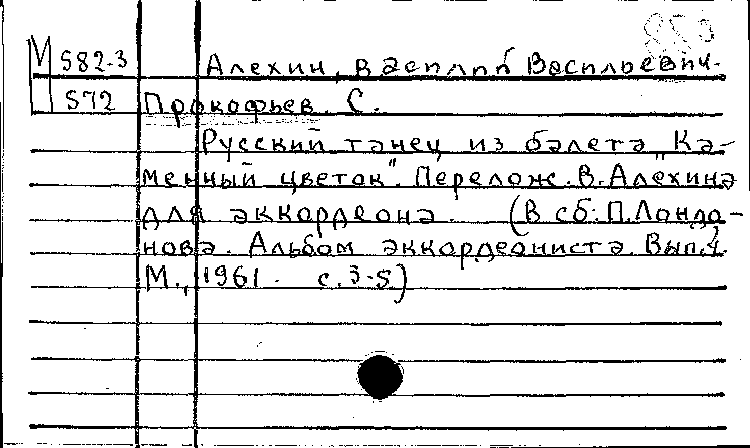 М 582-3 Алехин, Василий Васильевич.
572 Прокофьев. С.
Русский танец из балета „Ка-
менный цветок". Перелож. В. Алехина
для аккордеона. (В сб: П. Лонда-
нова. Альбом аккордеониста. Вып.
М., 1961. с. 3-5)